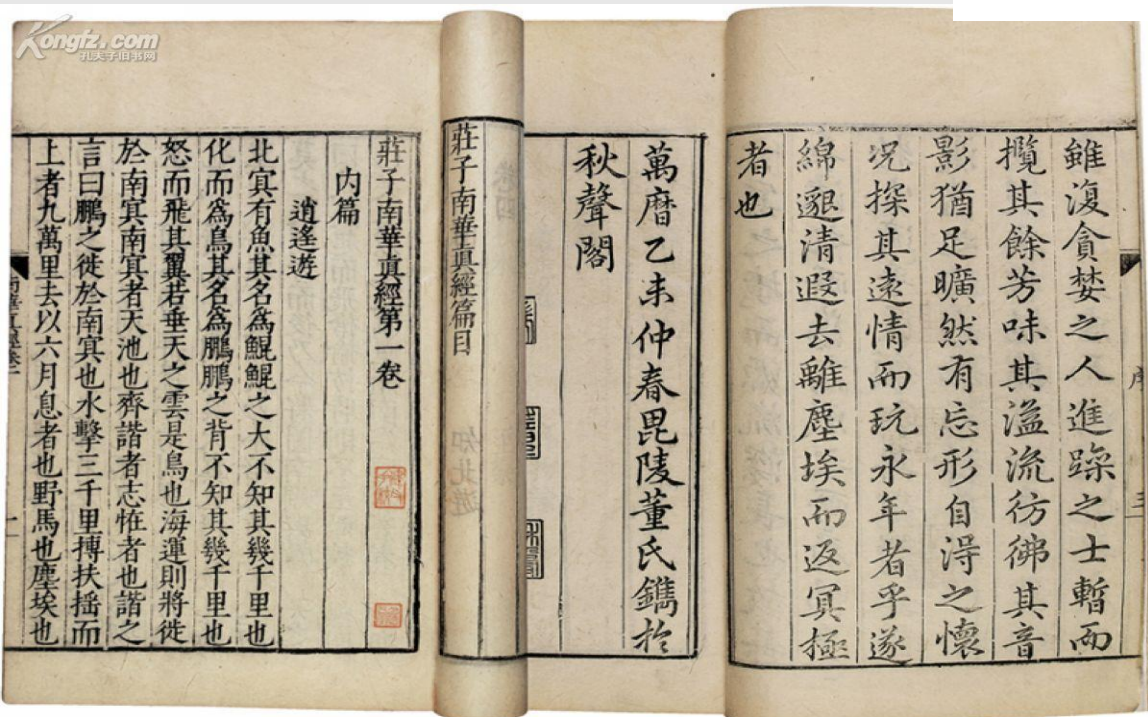 Kongfz.com
孔夫子旧书网
雖復貪婪之人進躁之士暫而
攬其餘芳味其溢流彷彿其音
影猶足曠然有忘形自淂之懷
况探其遠情而玩永年者乎遂
綿邈清遐去離塵埃而返冥極
者也
序
三
萬曆乙未仲春毘陵董氏鐫於
秋聲閣
莊子南華真經篇目
莊子南華眞經第一卷
内篇
逍遙遊
北㝠有魚其名為鯤鯤之大不知其幾千里也
化而為鳥其名為鵬鵬之背不知其幾千里也
怒而飛其翼若垂天之雲是鳥也海運則將徙
於南㝠南㝠者天池也齊諧者志恠者也諧之
言曰鵬之徙於南㝠也水擊三千里搏扶摇而
上者九萬里去以六月息者也野馬也塵埃也
一